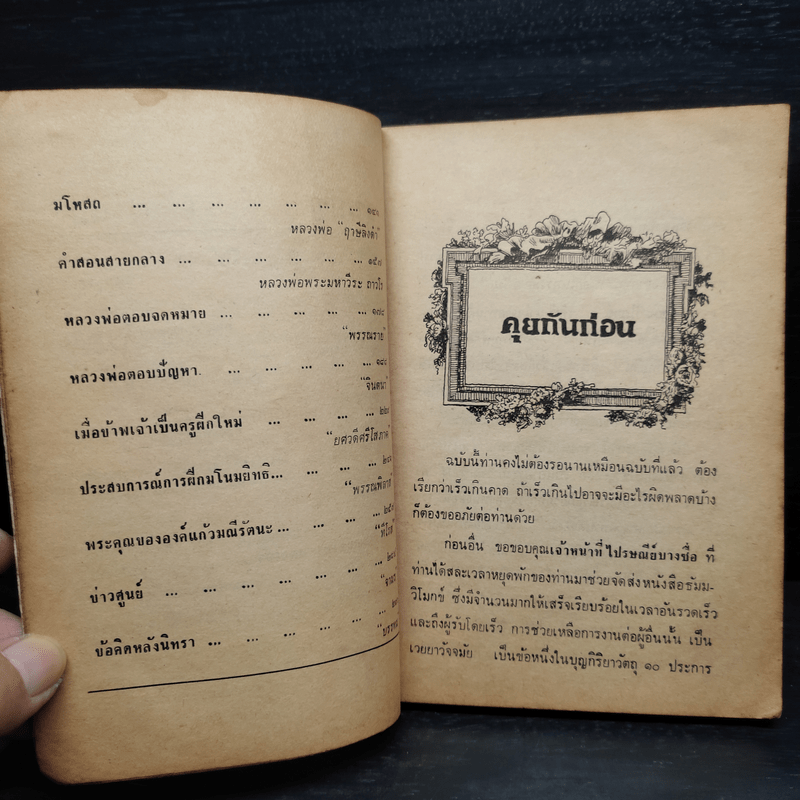 มโหสถ ... ... ... ... ... ... ...
หลวงพ่อ "ฤาษีลิงดำ"
คำสอนสายกลาง ... ... ... ... ... ... ๑๕๗
หลวงพ่อพระมหาวีระ ถาวโร
หลวงพ่อตอบจดหมาย ... ... ... ... ... ๑๗๔
"พรรณราย"
หลวงพ่อตอบปัญหา. ... ... ... ... ...
"จินตนา"
เมื่อข้าพเจ้าเป็นครูฝึกใหม่ ... ... ... ...
"ยศวดีศรีโสภาค"
ประสบการณ์การฝึกมโนมยิทธิ... ... ... ...
พระคุณขององค์แก้วมณีรัตนะ ... ... ... ...
ข่าวศูนย์ ... ... ... ... ... ... ...
ข้อคิดหลังนิทรา ... ... ... ... ... ...
คุยกันก่อน
ฉบับนี้ท่านคงไม่ต้องรอนานเหมือนฉบับที่แล้ว ต้อง
เรียกว่าเร็วเกินคาด ถ้าเร็วเกินไปอาจจะมีอะไรผิดพลาดบ้าง
ก็ต้องขออภัยต่อท่านด้วย
ก่อนอื่น ขอขอบคุณเจ้าหน้าที่ไปรษณีย์บางซื่อ ที่
ท่านได้สละเวลาหยุดพักของท่านมาช่วยจัดส่งหนังสือธัมม-
วิโมกข์ ซึ่งมีจำนวนมากให้เสร็จเรียบร้อยในเวลาอันรวดเร็ว
และถึงผู้รับโดยเร็ว การช่วยเหลือการงานต่อผู้อื่นนั้น เป็น
เวยยาวัจจมัย เป็นข้อหนึ่งในบุญกิริยาวัตถุ ๑๐ ประการ